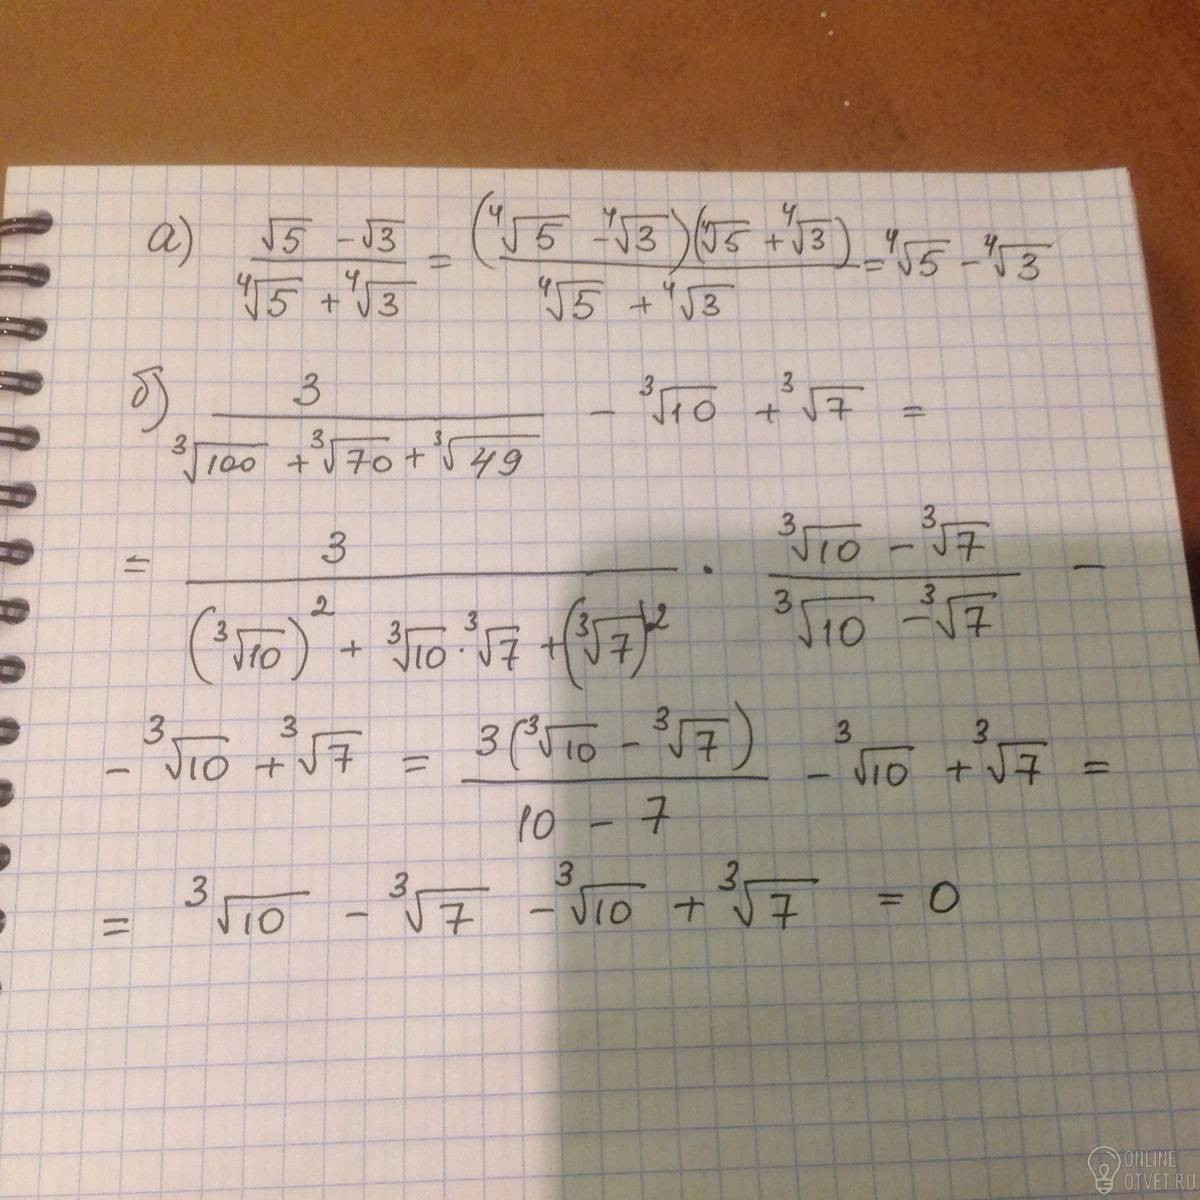 а) (√5 - √3)/(⁴√5 + ⁴√3) = ((⁴√5 - ⁴√3)(⁴√5 + ⁴√3))/(⁴√5 + ⁴√3) = ⁴√5 - ⁴√3
б) 3/(³√100 + ³√70 + ³√49) - ³√10 + ³√7 =
= 3/((³√10)² + ³√10 · ³√7 + (³√7)²) · (³√10 - ³√7)/(³√10 - ³√7) -
- ³√10 + ³√7 = 3(³√10 - ³√7)/(10 - 7) - ³√10 + ³√7 =
= ³√10 - ³√7 - ³√10 + ³√7 = 0
ONLINE
OTVET.RU